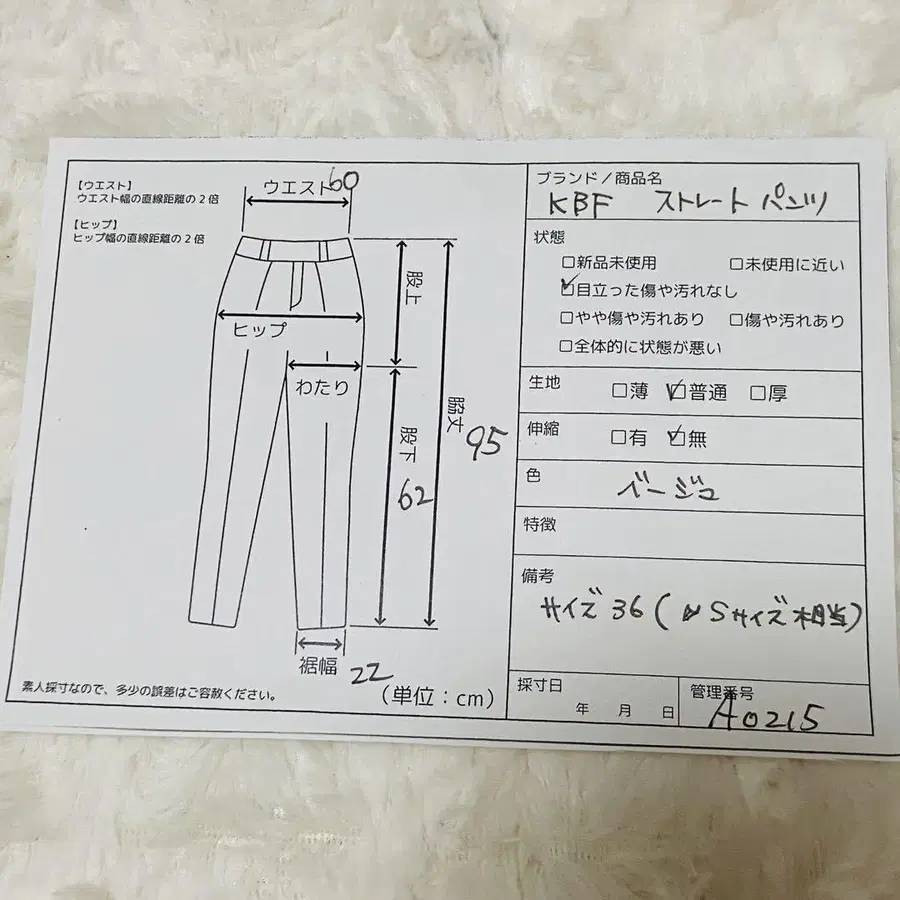 【ウエスト】
ウエスト幅の直線距離の2倍
【ヒップ】
ヒップ幅の直線距離の2倍
ウエスト60
股上
ヒップ
わたり
脇丈
95
股下
62
裾幅
22
素人採寸なので、多少の誤差はご容赦ください。
(単位:cm)
ブランド/商品名
KBF ストレートパンツ
状態
□新品未使用 □未使用に近い
☑目立った傷や汚れなし
□やや傷や汚れあり □傷や汚れあり
□全体的に状態が悪い
生地 □薄 ☑普通 □厚
伸縮 □有 ☑無
色
ベージュ
特徴
備考
サイズ36( Sサイズ相当)
採寸日
年 月 日
管理番号
A0215